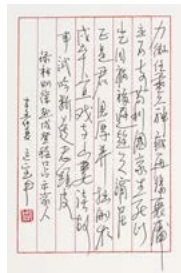 力微任重久神疲再竭衰庸
定不支苟利國家生死以
豈因禍福避趨之謫居
正是君恩厚养拙剛於
戍卒宜戲与山妻談故
事試吟斷送老頭皮
林則徐赴戍登程口占示家人